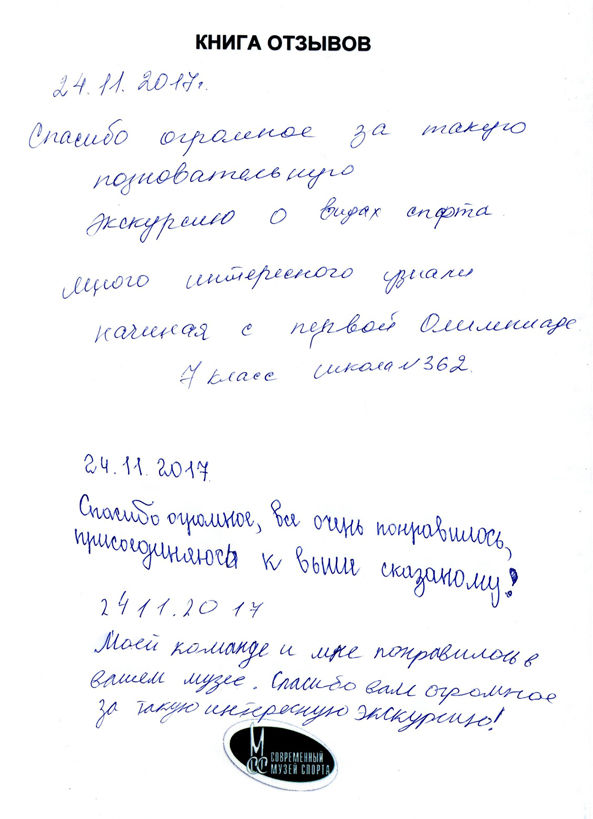 КНИГА ОТЗЫВОВ
24.11.2017г.
Спасибо огромное за такую
познавательную
экскурсию о видах спорта.
Много интересного узнали
начиная с первой Олимпиаде.
7 класс школа № 362.
24.11.2017
Спасибо огромное, все очень понравилось,
присоединяюсь к выше сказаному!
24 11.20 17
Моей команде и мне понравилось в
вашем музее. Спасибо вам огромное
за такую интересную экскурсию!
МСС СОВРЕМЕННЫЙ
МУЗЕЙ СПОРТА